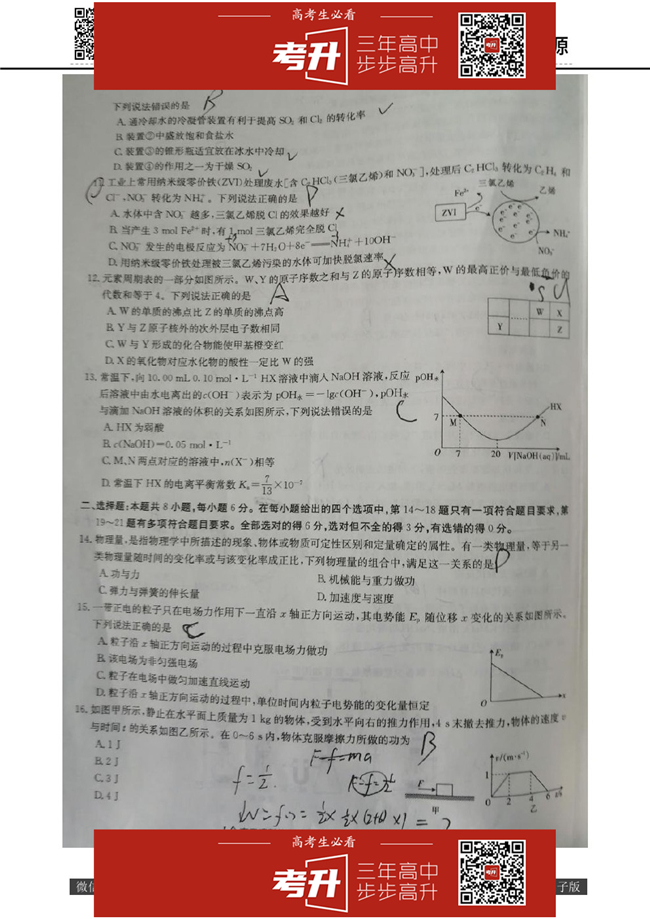 高考生必看
考升
三年高中
步步高升
考升
源
下列说法错误的是 B
A. 通冷却水的冷凝管装置有利于提高 SO₂ 和 Cl₂ 的转化率
B. 装置②中盛放饱和食盐水
C. 装置③的锥形瓶适宜放在冰水中冷却
D. 装置④的作用之一为干燥 SO₂
11. 工业上常用纳米级零价铁(ZVI)处理废水[含 C₂HCl₃(三氯乙烯)和 NO₃⁻],处理后 C₂HCl₃ 转化为 C₂H₄ 和
Cl⁻,NO₃⁻ 转化为 NH₄⁺。下列说法正确的是 D
A. 水体中含 NO₃⁻ 越多,三氯乙烯脱 Cl 的效果越好
B. 当产生 3 mol Fe²⁺ 时,有 1 mol 三氯乙烯完全脱 Cl
C. NO₃⁻ 发生的电极反应为 NO₃⁻+7H₂O+8e⁻══NH₄⁺+10OH⁻
D. 用纳米级零价铁处理被三氯乙烯污染的水体可加快脱氯速率
三氯乙烯
乙烯
Fe²⁺
ZVI
e⁻
NH₄⁺
NO₃⁻
12. 元素周期表的一部分如图所示。W、Y 的原子序数之和与 Z 的原子序数相等,W 的最高正价与最低负价的
代数和等于 4。下列说法正确的是 A
A. W 的单质的沸点比 Z 的单质的沸点高
B. Y 与 Z 原子核外的次外层电子数相同
C. W 与 Y 形成的化合物能使甲基橙变红
D. X 的氧化物对应水化物的酸性一定比 W 的强
S
W X
Y Z
13. 常温下,向 10.00 mL 0.10 mol·L⁻¹ HX 溶液中滴入 NaOH 溶液,反应
后溶液中由水电离出的 c(OH⁻)表示为 pOH水=−lgc(OH⁻),pOH水
与滴加 NaOH 溶液的体积的关系如图所示,下列说法错误的是 C
A. HX 为弱酸
B. c(NaOH)=0.05 mol·L⁻¹
C. M、N 两点对应的溶液中,n(X⁻)相等
D. 常温下 HX 的电离平衡常数 Kₐ=7/13×10⁻⁷
pOH水
7
M
N
HX
O 7 20 V[NaOH(aq)]/mL
二、选择题:本题共 8 小题,每小题 6 分。在每小题给出的四个选项中,第 14~18 题只有一项符合题目要求,第
19~21 题有多项符合题目要求。全部选对的得 6 分,选对但不全的得 3 分,有选错的得 0 分。
14. 物理量,是指物理学中所描述的现象、物体或物质可定性区别和定量确定的属性。有一类物理量,等于另一
类物理量随时间的变化率或与该变化率成正比,下列物理量的组合中,满足这一关系的是 D
A. 功与力 B. 机械能与重力做功
C. 弹力与弹簧的伸长量 D. 加速度与速度
15. 一带正电的粒子只在电场力作用下一直沿 x 轴正方向运动,其电势能 Eₚ 随位移 x 变化的关系如图所示。
下列说法正确的是 C
A. 粒子沿 x 轴正方向运动的过程中克服电场力做功
B. 该电场为非匀强电场
C. 粒子在电场中做匀加速直线运动
D. 粒子沿 x 轴正方向运动的过程中,单位时间内粒子电势能的变化量恒定
Eₚ
O x
16. 如图甲所示,静止在水平面上质量为 1 kg 的物体,受到水平向右的推力作用,4 s 末撤去推力,物体的速度 v
与时间 t 的关系如图乙所示。在 0~6 s 内,物体克服摩擦力所做的功为 B
A. 1 J
B. 2 J
C. 3 J
D. 4 J
F-f=ma
f=1/2.
F=f=1/2
F
甲
v/(m·s⁻¹)
1
O 2 4 6 t/s
乙
高考生必看
考升
三年高中
步步高升
考升
微信
子版